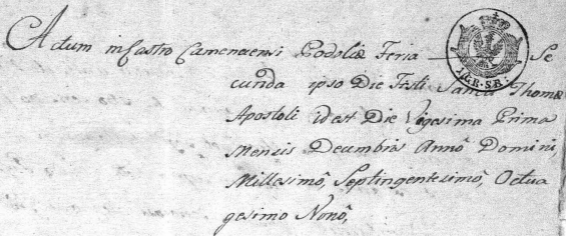 Actum in Castro Camenecensi Podoliæ Feria Se
cunda ipso Die Festi Sancti Thomæ
Apostoli id est Die Vigesima Prima
Mensis Decembris Annô Domini,
Millesimô, Septingentesimô, Octua
gesimo Nonô,